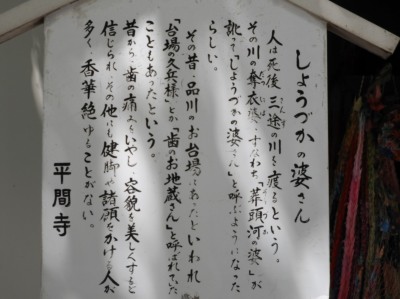 しょうづかの婆さん
人は死後三途の川を渡るという。
その川の奪衣婆、すなわち「葬頭河の婆」が
訛って「しょうづかの婆さん」と呼ぶようになった
らしい。
その昔、品川のお台場にあったといわれ
「台場の久兵様」とか「歯のお地蔵さん」と呼ばれていた
こともあったという。
昔から、歯の痛みをいやし、容貌を美しくすると
信じられ、その他にも健脚や諸願をかける人が
多く、香華絶ゆることがない。
平間寺